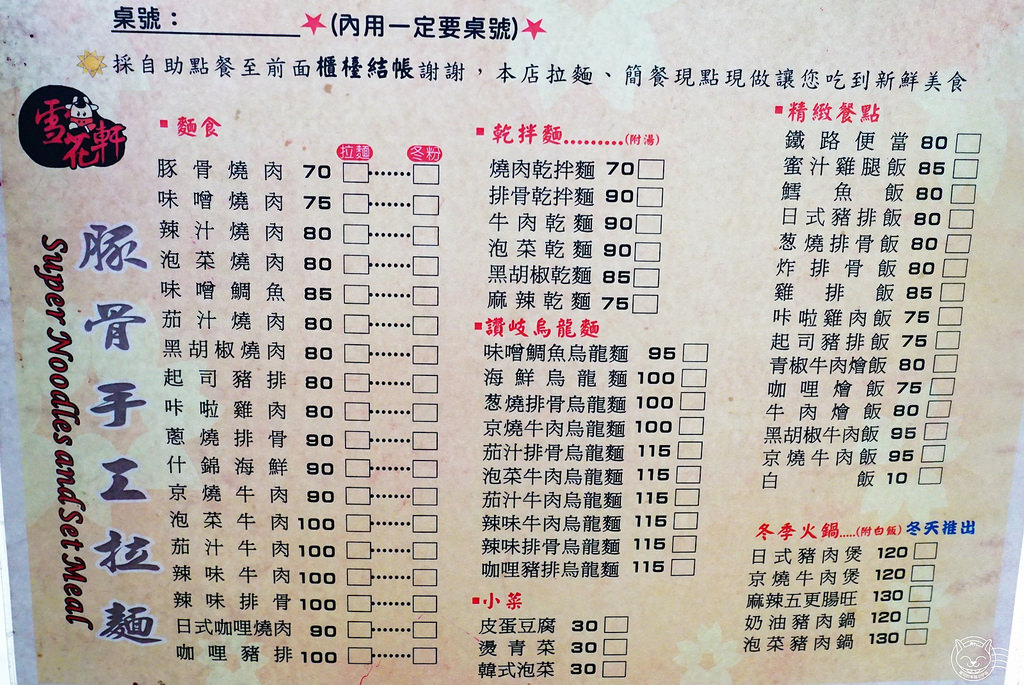 桌號：
★(內用一定要桌號)★
採自助點餐至前面櫃檯結帳謝謝，本店拉麵、簡餐現點現做讓您吃到新鮮美食
雪花軒
豚骨手工拉麵
Super Noodles and Set Meal
▪麵食
拉麵 冬粉
豚骨燒肉 70
味噌燒肉 75
辣汁燒肉 80
泡菜燒肉 80
味噌鯛魚 85
茄汁燒肉 80
黑胡椒燒肉 80
起司豬排 80
咔啦雞肉 80
蔥燒排骨 90
什錦海鮮 90
京燒牛肉 90
泡菜牛肉 100
茄汁牛肉 100
辣味牛肉 100
辣味排骨 100
日式咖哩燒肉 90
咖哩豬排 100
▪乾拌麵..........(附湯)
燒肉乾拌麵 70
排骨乾拌麵 90
牛肉乾麵 90
泡菜乾麵 90
黑胡椒乾麵 85
麻辣乾麵 75
▪讚岐烏龍麵
味噌鯛魚烏龍麵 95
海鮮烏龍麵 100
葱燒排骨烏龍麵 100
京燒牛肉烏龍麵 100
茄汁排骨烏龍麵 115
泡菜牛肉烏龍麵 115
茄汁牛肉烏龍麵 115
辣味牛肉烏龍麵 115
辣味排骨烏龍麵 115
咖哩豬排烏龍麵 115
▪小菜
皮蛋豆腐 30
燙青菜 30
韓式泡菜 30
▪精緻餐點
鐵路便當 80
蜜汁雞腿飯 85
鱈魚飯 80
日式豬排飯 80
葱燒排骨飯 80
炸排骨飯 80
雞排飯 85
咔啦雞肉飯 75
起司豬排飯 75
青椒牛肉燴飯 80
咖哩燴飯 75
牛肉燴飯 80
黑胡椒牛肉飯 95
京燒牛肉飯 95
白飯 10
冬季火鍋.....(附白飯) 冬天推出
日式豬肉煲 120
京燒牛肉煲 120
麻辣五更腸旺 130
奶油豬肉鍋 120
泡菜豬肉鍋 130